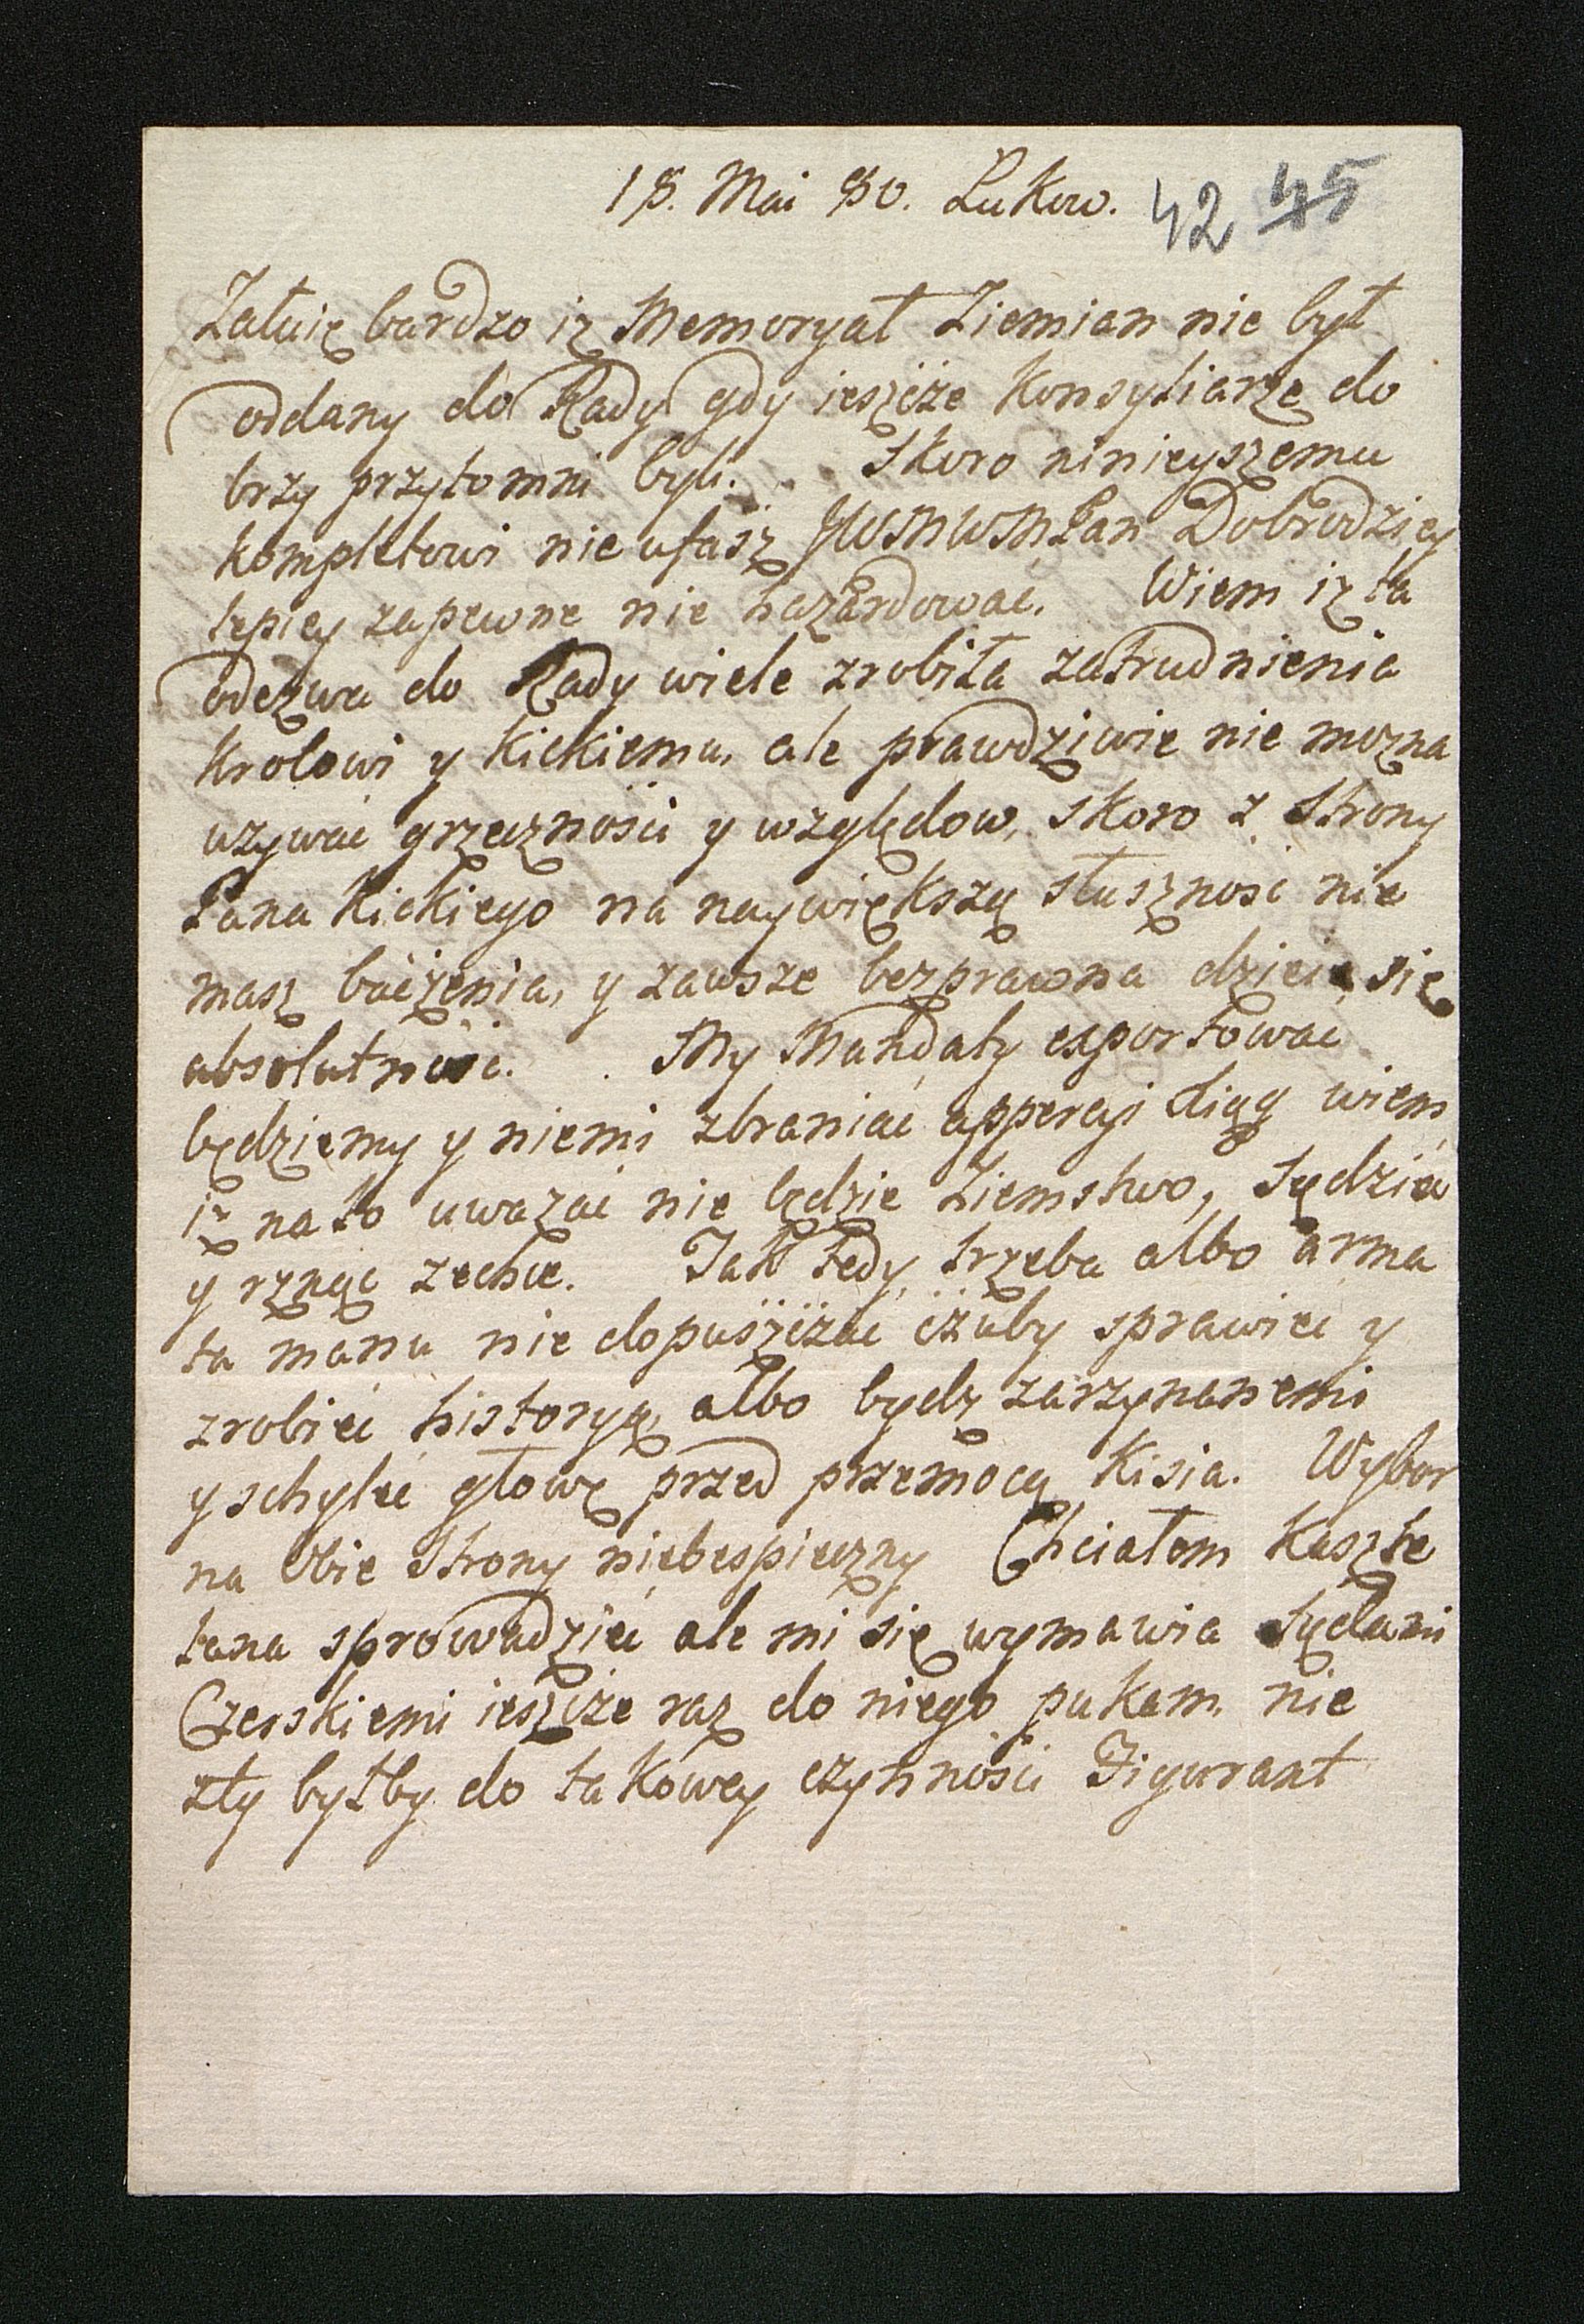 18. Mai 80. Łukow. 42 45
Załuię bardzo iz Memoryał Ziemian nie był
oddany do Rady gdy ieszcże Konsyliarze do
brzy przytomni byli. Skoro ninieyszemu
kompletowi nie ufasz JWMWMPan Dobrodziey
lepiey zapewne nie hazardować. Wiem iz ta
odezwa do Rady wiele zrobiła zatrudnienia
Krolowi y Kickiemu, ale prawdziwie nie mozna
uzywać grzeczności y względow, skoro z strony
Pana Kickiego na naywiększą słuszność nie
masz bacżenia, y zawsze bezprawna dzieie się
absolutność. My Mandaty exportować
będziemy y niemi zbraniać appercyi diąg wiem
iz na to uwazać nie będzie Ziemstwo, Sędzić
y rznąc zechce. Tak tedy trzeba albo arma
ta manu nie dopuszcżać cżuby sprawieć y
zrobieć historyą, albo bydz zarzynanemi
y schyleć głowę przed przemocą Kisia. Wybor
na obie strony niebespieczny Chciałem Kaszte
lana sprowadzieć ale mi się wymawia Sądami
Czerskiemi ieszcże raz do niego pukam. nie
zły byłby do takowey czynności Figurant